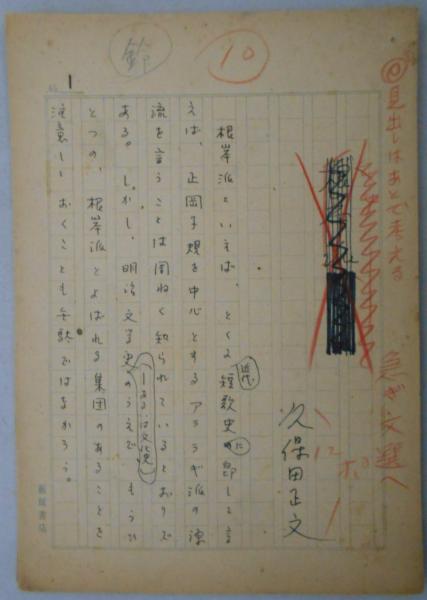 ◎見出しはあとで考える
急ぎ文選へ
10
鈴
1
久保田正文
根岸派といえば、とくに近代短歌史に即して言
えば、正岡子規を中心とするアララギ派の源
流を言うことは周ねく知られているとおりで
ある。しかし、明治文学史(あるいは文化史)のうえで、もうひ
とつの、根岸派とよばれる集団のあることを
注意しておくことも無駄ではなかろう。